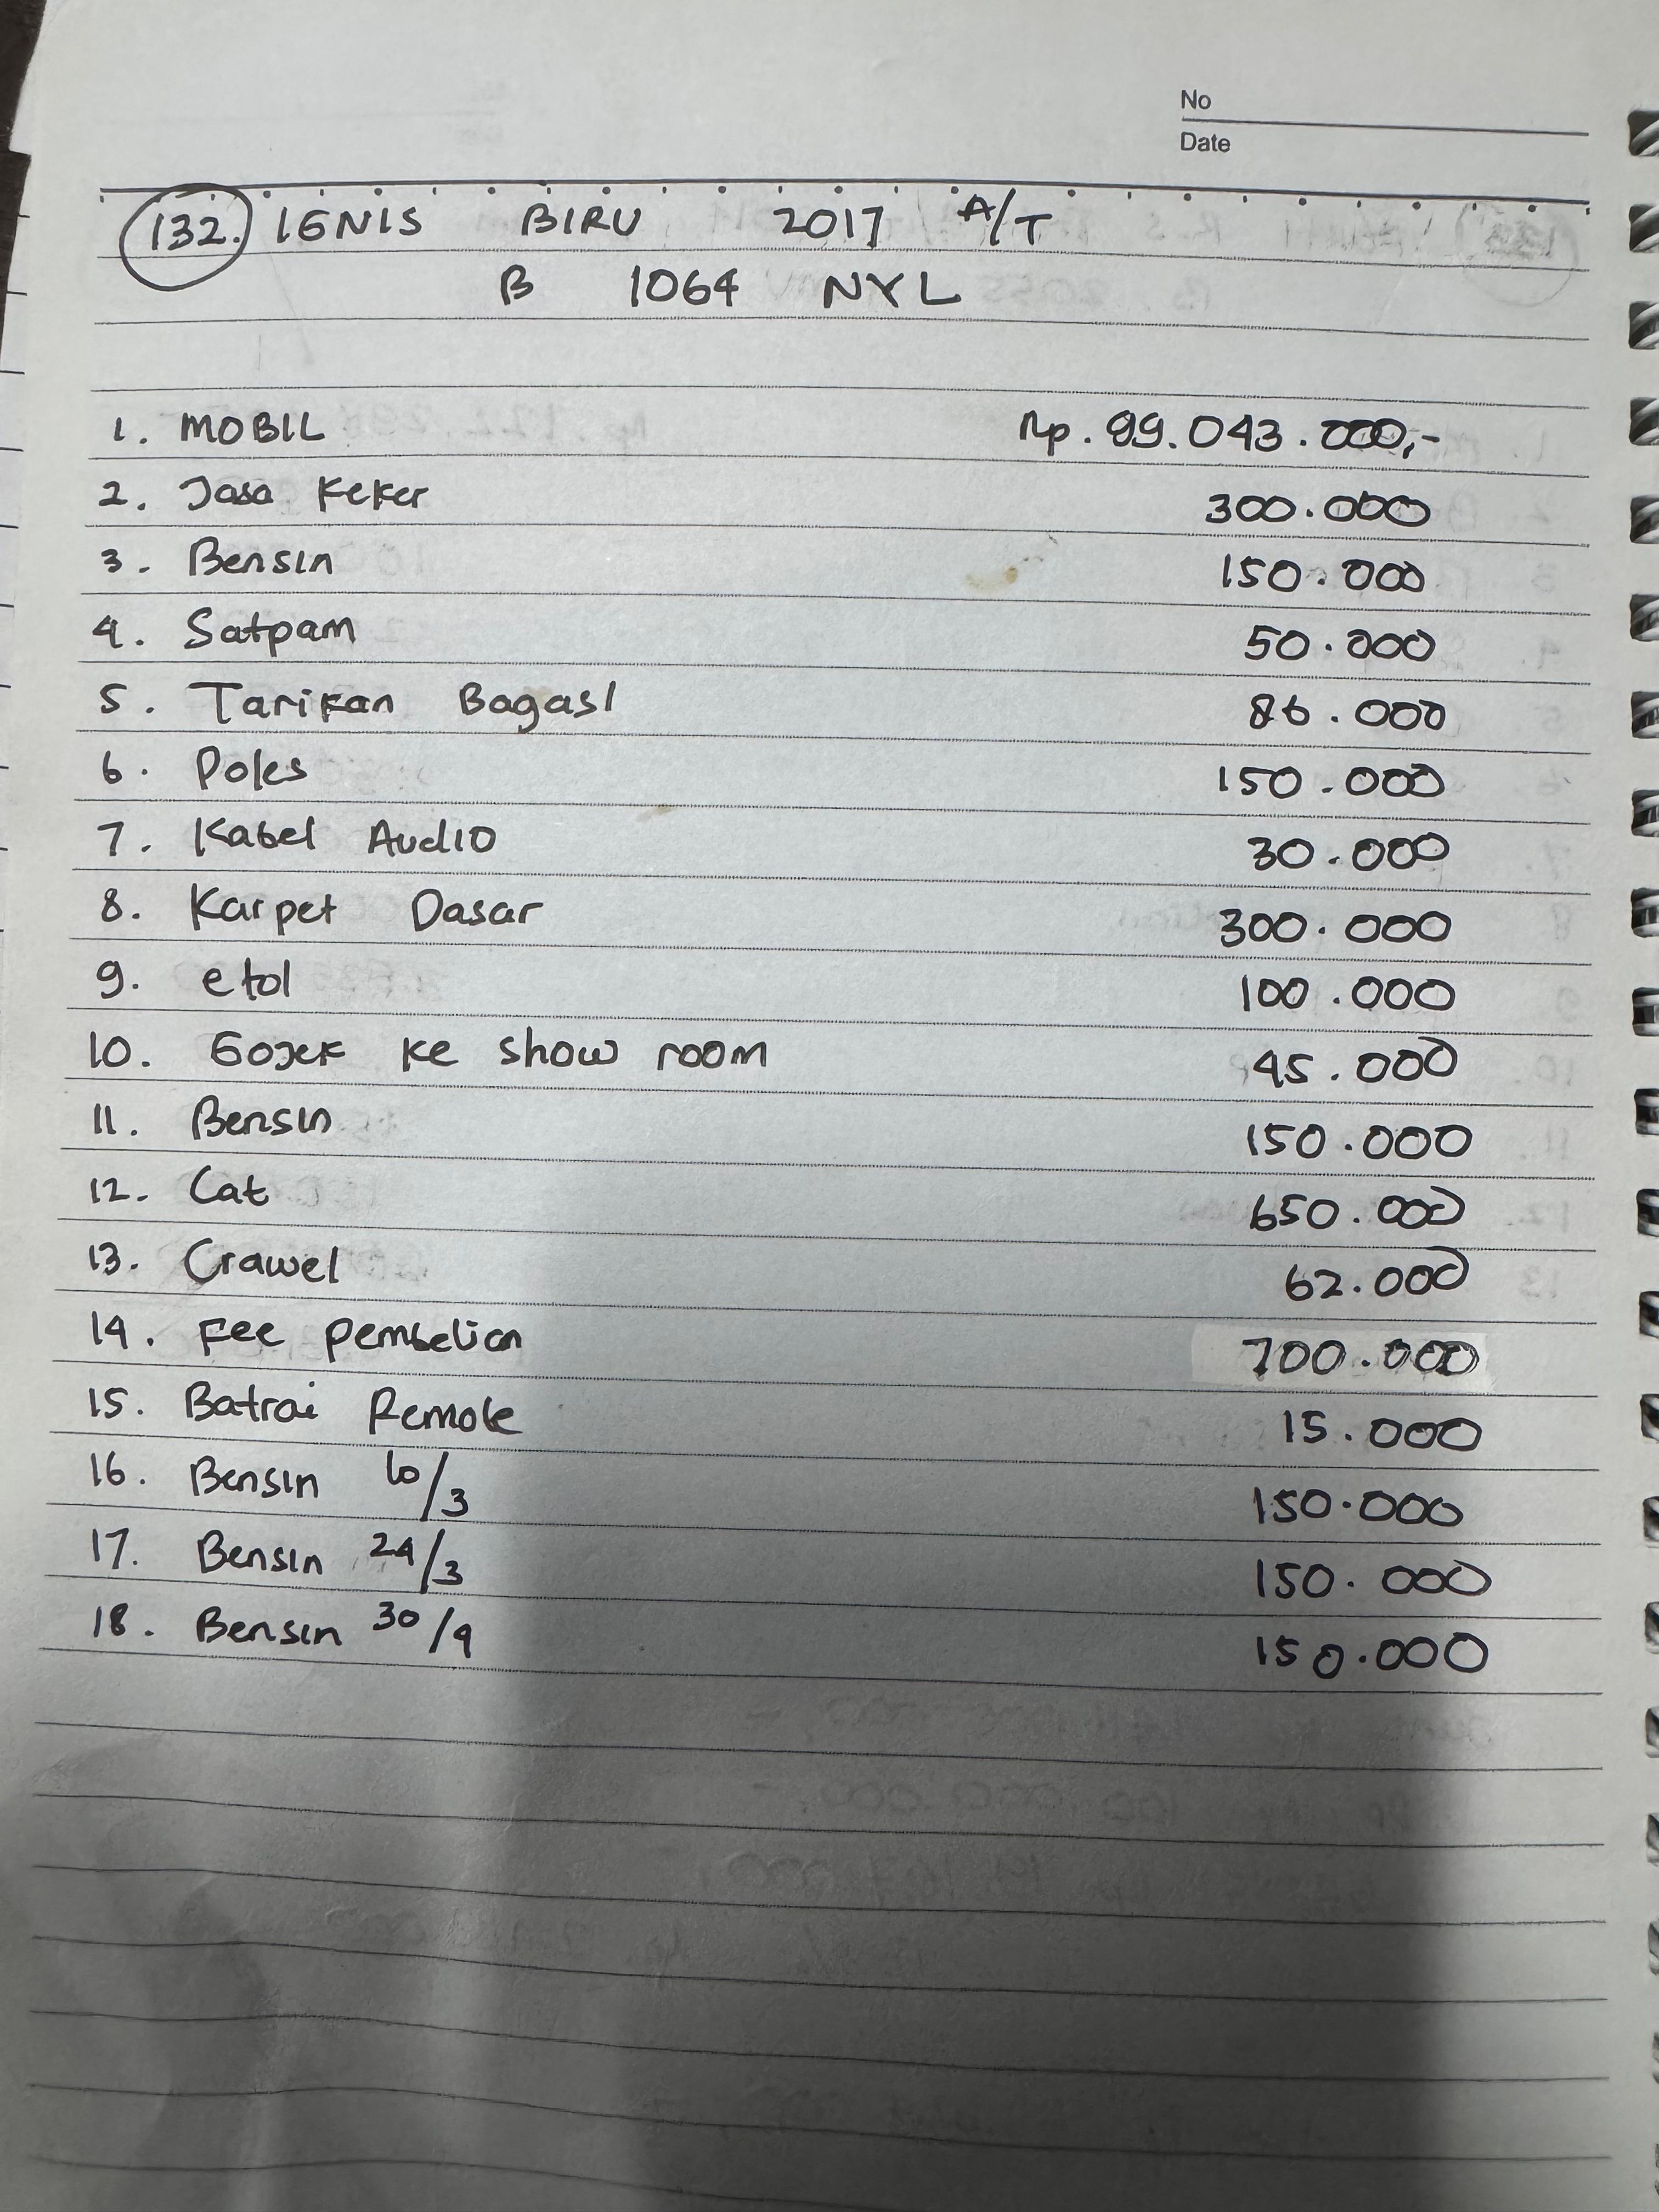 No
Date
132. IGNIS BIRU 2017 A/T
B 1064 NYL
1. MOBIL Rp. 99.043.000,-
2. Jasa Keker 300.000
3. Bensin 150.000
4. Satpam 50.000
5. Tarikan Bagasi 86.000
6. Poles 150.000
7. Kabel Audio 30.000
8. Karpet Dasar 300.000
9. etol 100.000
10. Gojek ke show room 45.000
11. Bensin 150.000
12. Cat 650.000
13. Crawel 62.000
14. Fee Pembelian 700.000
15. Batrai Remote 15.000
16. Bensin 10/3 150.000
17. Bensin 24/3 150.000
18. Bensin 30/4 150.000